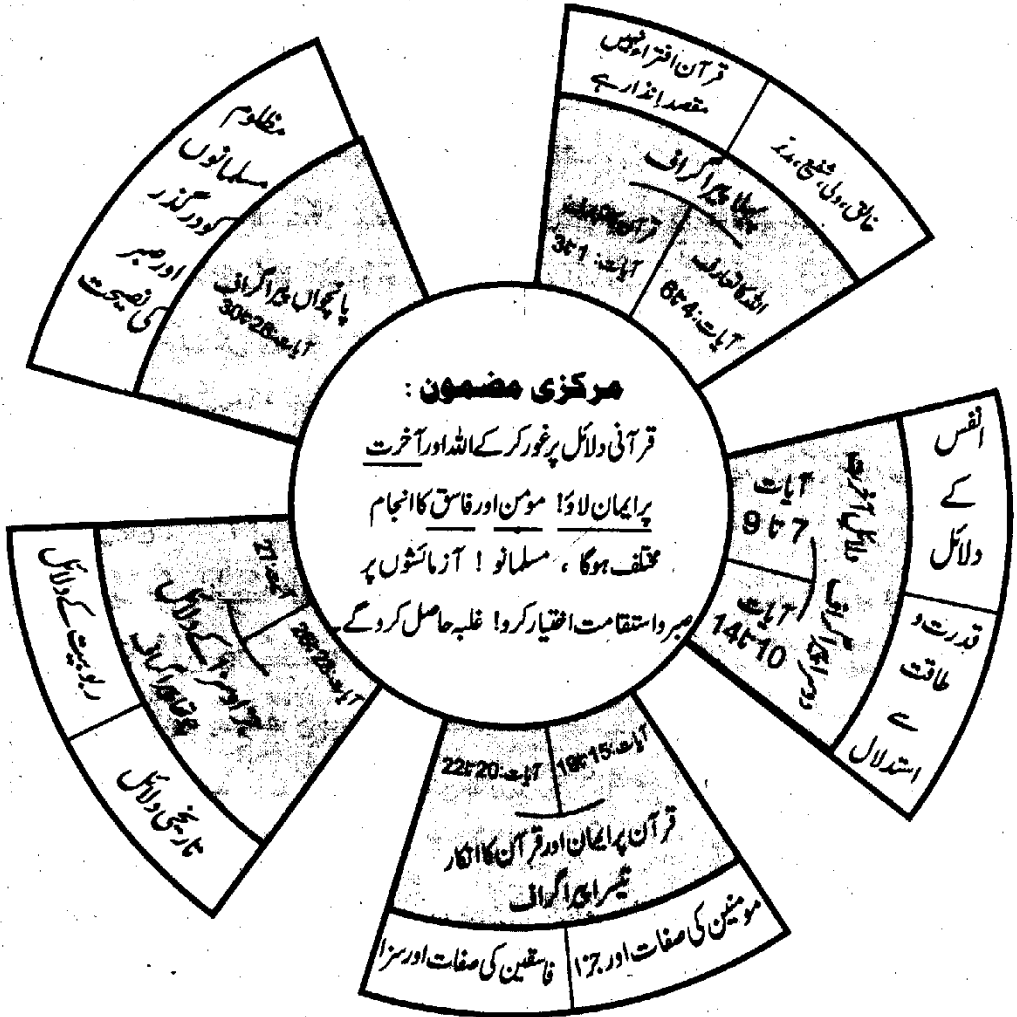 مرکزی مضمون :
قرآنی دلائل پر غور کر کے اللہ اور آخرت
پر ایمان لاؤ! مومن اور فاسق کا انجام
مختلف ہوگا ، مسلمانو ! آزمائشوں پر
صبر و استقامت اختیار کرو! غلبہ حاصل کرو گے۔
قرآن افتراء نہیں
مقصد انذار ہے
خالق، ولی، شفیع، مدبّر
پہلا پیراگراف
آیات: 1 تا 3
اللہ کا تعارف
آیات: 4 تا 6
انفس
کے
دلائل
قدرت و
طاقت
سے
استدلال
دوسرا پیراگراف
دلائلِ آخرت
آیات
7 تا 9
آیات
10 تا 14
آیات: 15 تا 19
آیات: 20 تا 22
قرآن پر ایمان اور قرآن کا انکار
تیسرا پیراگراف
مومنین کی صفات اور جزا
فاسقین کی صفات اور سزا
ربوبیت کے دلائل
تاریخی دلائل
جزا و سزا کے دلائل
چوتھا پیراگراف
مظلوم
مسلمانوں
کو درگذر
اور صبر
کی نصیحت
پانچواں پیراگراف
آیات: 28 تا 30